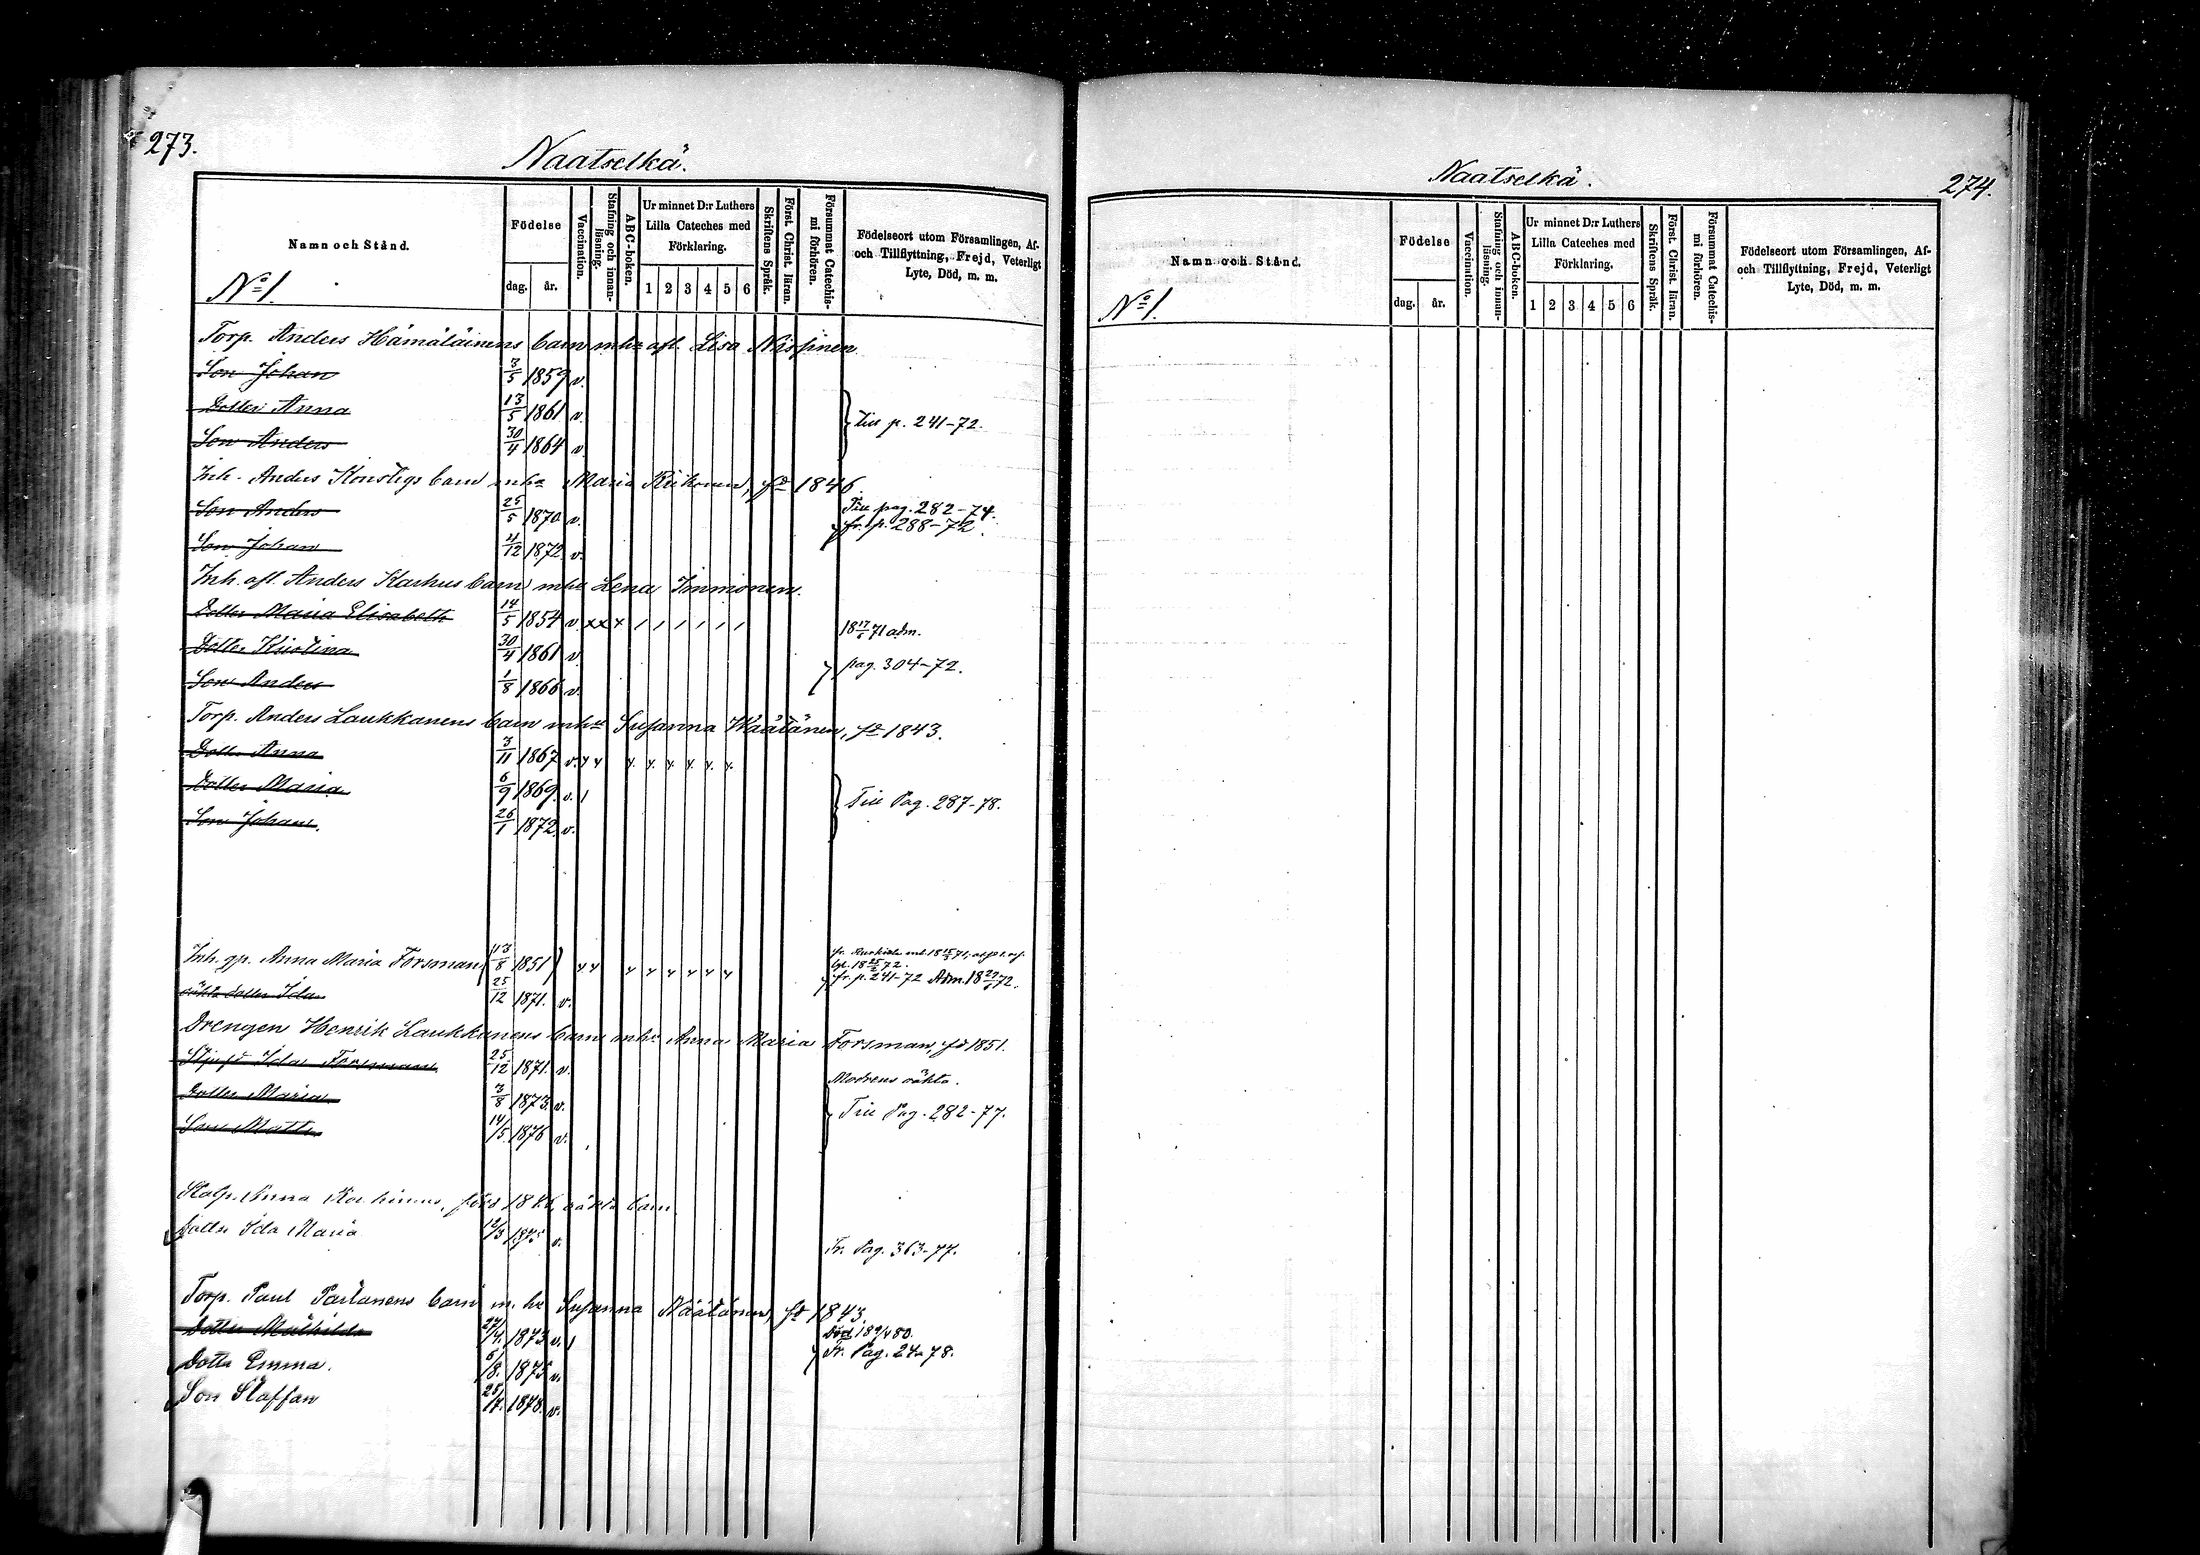 273.
Naatselkä.
Namn och Stånd.
No 1.
Födelse
dag. år.
Vaccination.
Stafning och innanläsning.
ABC-boken.
Ur minnet D:r Luthers Lilla Cateches med Förklaring.
1 2 3 4 5 6
Skriftens Språk.
Först. Christ. läran.
Försummat Catechismi förhören.
Födelseort utom Församlingen, Af- och Tillflyttning, Frejd, Veterligt Lyte, Död, m. m.
Torp. Anders Hämäläinens barn m hu afl. Lisa Nissinen
Son Johan 3/5 1859 v.
Dotter Anna 13/5 1861 v.
Till p. 241-72.
Son Anders 30/4 1864 v.
Inh. Anders Konstigs barn m hu Maria Riikonen, fd 1846.
Son Anders 25/5 1870 v. Till pag. 282-74.
fr. p. 288-72.
Son Johan 4/12 1872 v.
Inh. afl. Anders Karhus barn m hu Lena Immonen.
Dotter Maria Elisabeth 14/5 1854 v. x x x / / / / / / 18 17/6 71 adm.
Dotter Kristina 30/4 1861 v.
pag. 304-72.
Son Anders 1/8 1866 v.
Torp. Anders Laukkanens barn m hu Susanna Näätänen, fd 1843.
Dotter Anna 3/11 1867 v.
Dotter Maria 6/9 1869. v. /
Till Pag. 287-78.
Son Johan. 26/1 1872. v.
Inh. qp. Anna Maria Forsman (13/8 1851)
fr. p. 241-72 Adm. 18 72.
oäkta dotter Ida 25/12 1871. v.
Drengen Henrik Laukkanens barn m hu Anna Maria Forsman, fd 1851.
Ida Forsman 25/12 1871. v. Modrens oäkta.
Dotter Maria 3/8 1873. v.
Till Pag. 282-77.
Son Matts 14/5. 1876 v.
Anna oäkta barn
Dotter Ida Maria 12/3 1875 v. Fr. Pag. 363-77.
Torp. Paul Partanens barn m. hu Susanna Näätänen, fd 1843.
Dotter Mathilda 27/4. 1873 v. / Död
Fr. Pag. 24-78.
Dotter Emma. 6/8. 1875 v.
Son Staffan 25/7. 1878. v.
Naatselkä.
274.
Namn och Stånd.
No 1.
Födelse
dag. år.
Vaccination.
Stafning och innanläsning.
ABC-boken.
Ur minnet D:r Luthers Lilla Cateches med Förklaring.
1 2 3 4 5 6
Skriftens Språk.
Först. Christ. läran.
Försummat Catechismi förhören.
Födelseort utom Församlingen, Af- och Tillflyttning, Frejd, Veterligt Lyte, Död, m. m.